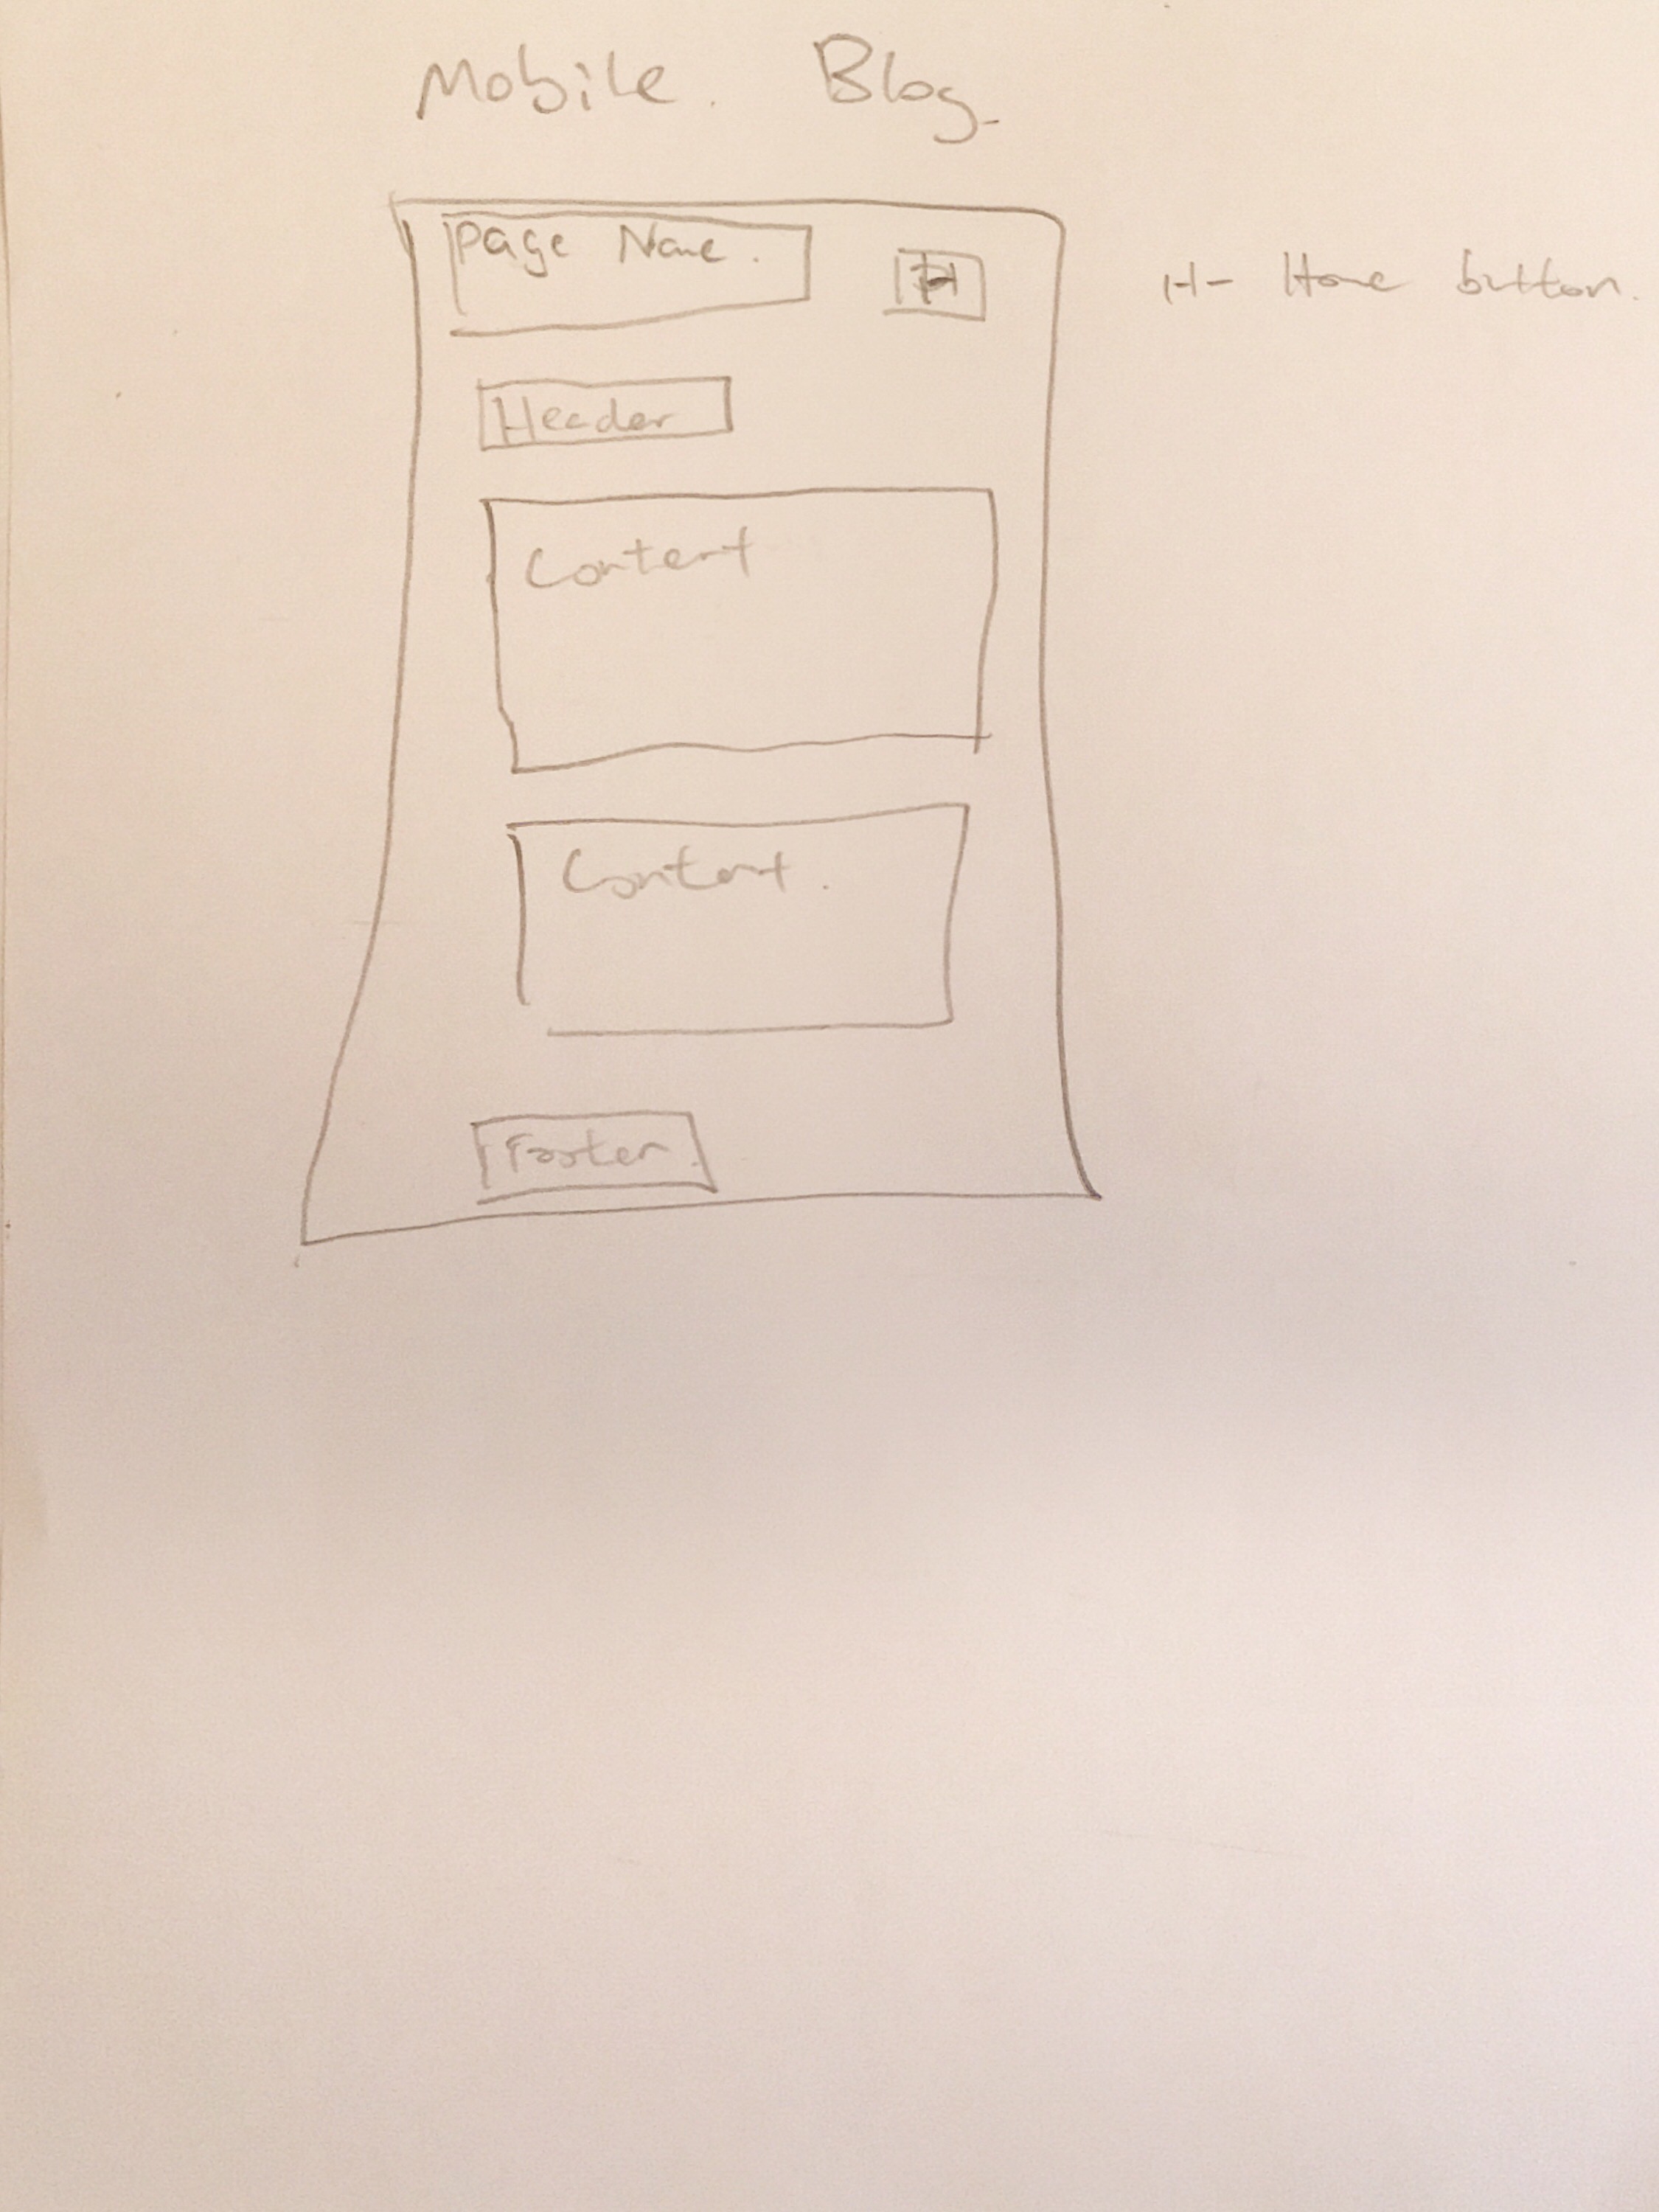 Mobile. Blog
Page Name.
H
H- Home button.
Header
Content
Content.
Footer.